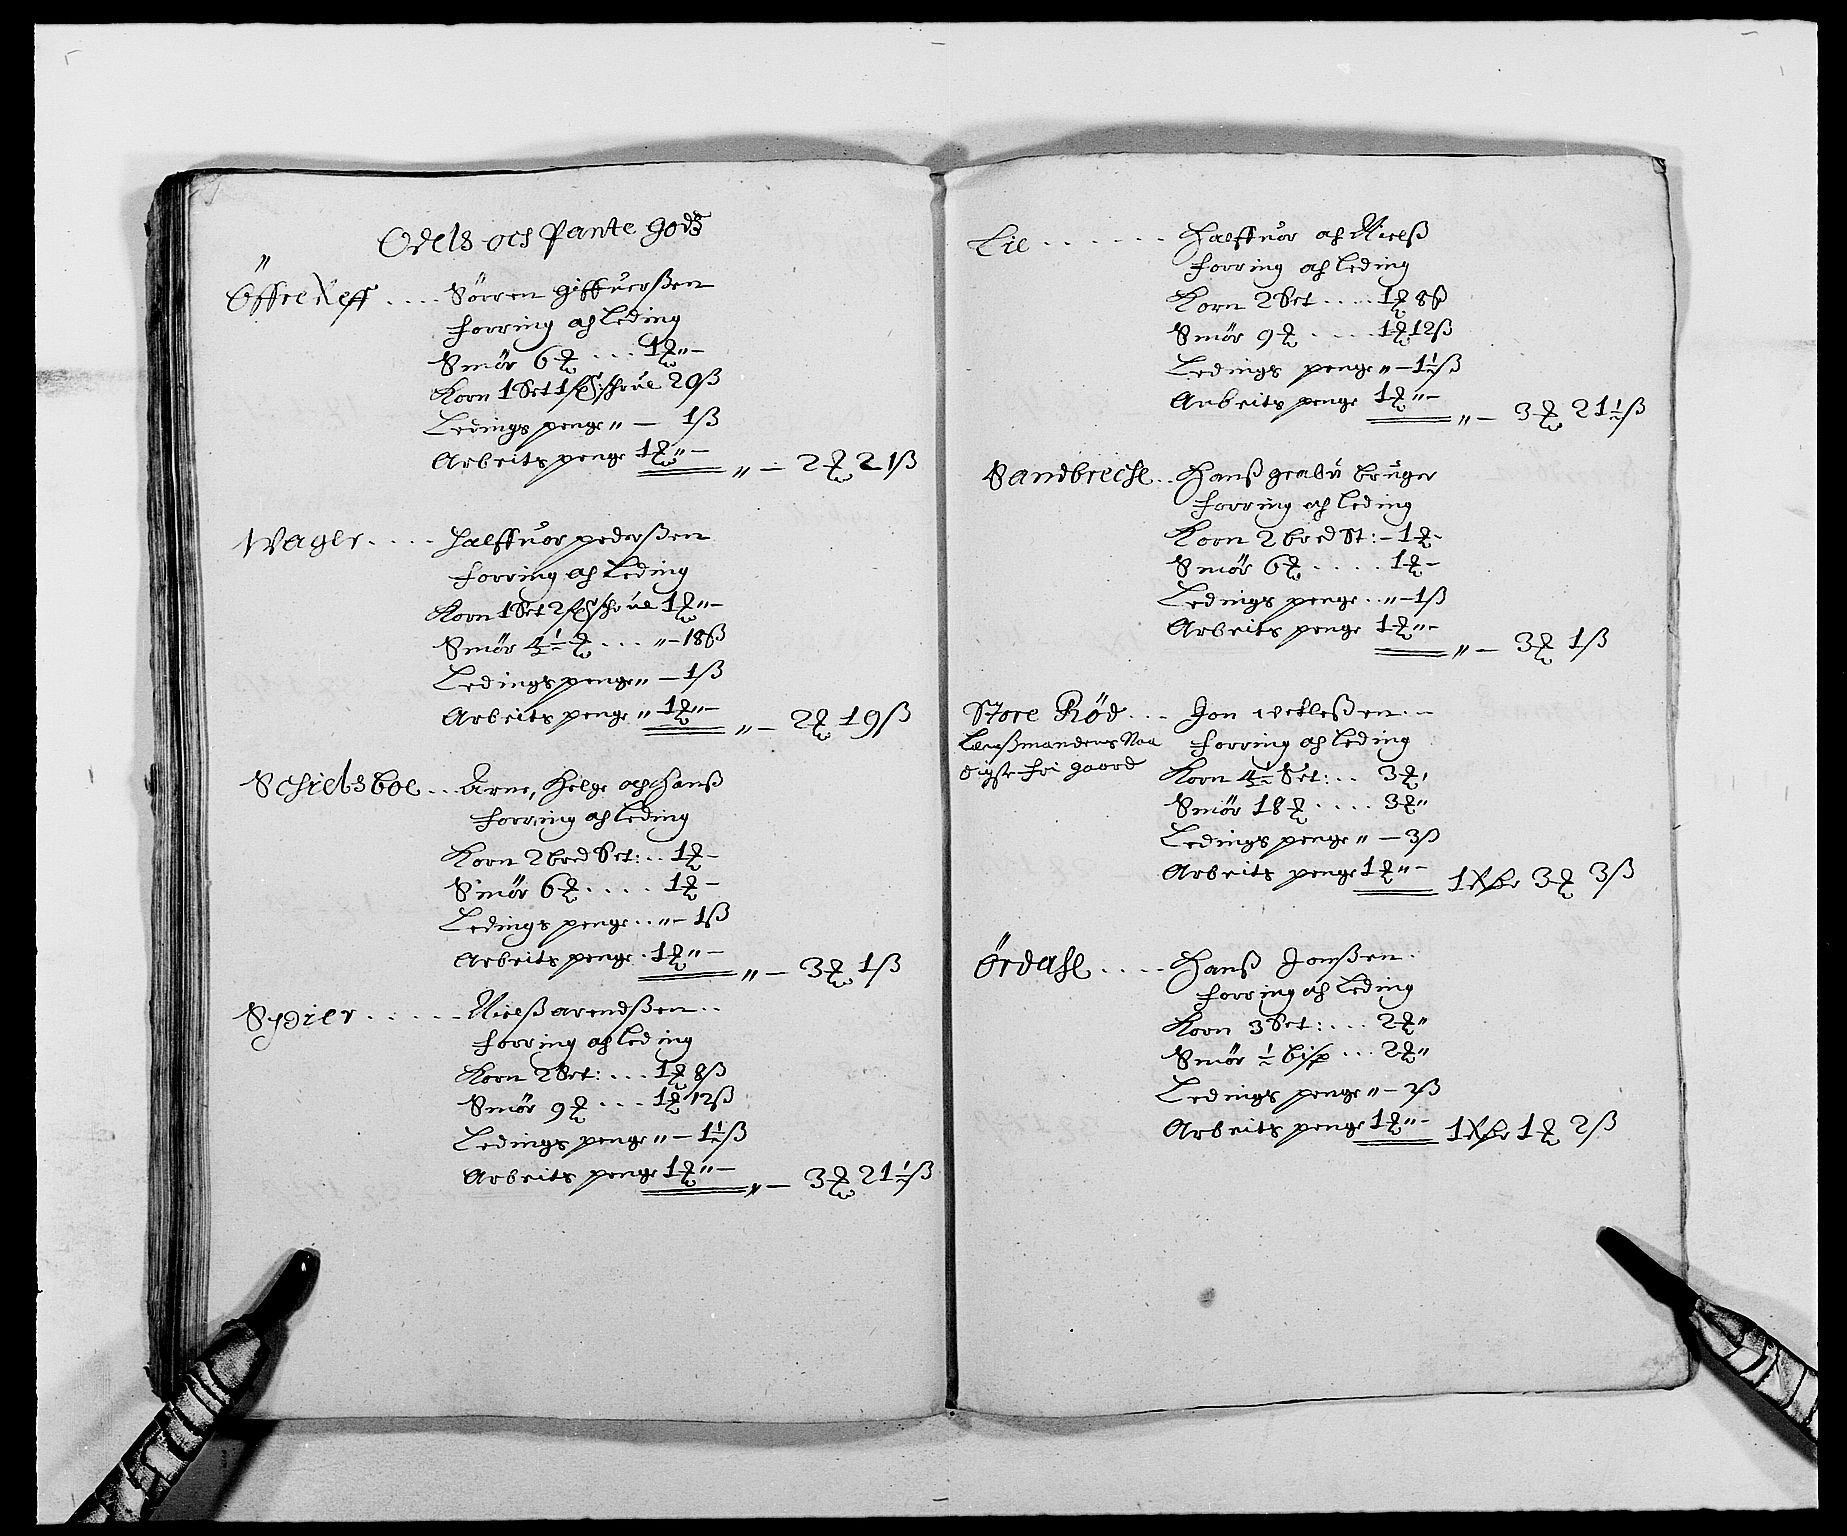 Odels och Pante godtz
Öffre Næff .... Sörren giffuerßen
forring och Leding
Smör 6 ℔ ... 1 ℔ " –
Korn 1 Set 1 schrue 20 ß
Ledings penge " – 1 ß
Arbeits penge 1 ℔ " – " – 2 ℔ 21 ß
Wager .... Halffuor pederßen
forring och Leding
Korn 1 Set 2 schrue 1 ℔ " –
Smör 4½ ℔ ... " – 18 ß
Ledings penge " – 1 ß
Arbeits penge " 1 ℔ " – " – 2 ℔ 19 ß
Schielsboe .. Arne, Helge och Hanß
forring och leding
Korn 2 bred Set: .. 1 ℔ –
Smör 6 ℔ .... 1 ℔ –
Ledings penge .. " – 1 ß
Arbeits penge . 1 ℔ " – " – 3 ℔ 1 ß
Sydier ..... Nielß arendßen ..
forring och leding
Korn 2 Set: ... 1 ℔ 8 ß
Smör 9 ℔ ... 1 ℔ 12 ß
Ledings penge " – 1½ ß
Arbeits penge 1 ℔ " – " – 3 ℔ 21½ ß
Lie ...... Halffuor och Nielß
forring och Leding
Korn 2 Set .... 1 ℔ 8 ß
Smör 9 ℔ .... 1 ℔ 12 ß
Ledings penge " – 1½ ß
Arbeits penge 1 ℔ " – " – 3 ℔ 21½ ß
Sandbrecke .. Hanß grabu bruger
forring och leding
Korn 2 bred St: – 1 ℔ –
Smör 6 ℔ .... 1 ℔ –
Ledings penge .. " – 1 ß
Arbeits penge 1 ℔ " – " – 3 ℔ 1 ß
Store Röd ... Jon vetleßen . –
Lenßmandens Naa forring och leding
digste fri gaard Korn 4½ Set: .. 3 ℔ "
Smör 18 ℔ .... 3 ℔ "
Ledings penge " – 3 ß
Arbeits penge 1 ℔ " – 1 Rdr 3 ℔ 3 ß
Ördahl .... Hanß Jonßen .
forring och Leding
Korn 3 Set: ... 2 ℔ "
Smör ½ bisp ... 2 ℔ "
Ledings penge " – 2 ß
Arbeits penge 1 ℔ " – 1 Rdr 1 ℔ 2 ß